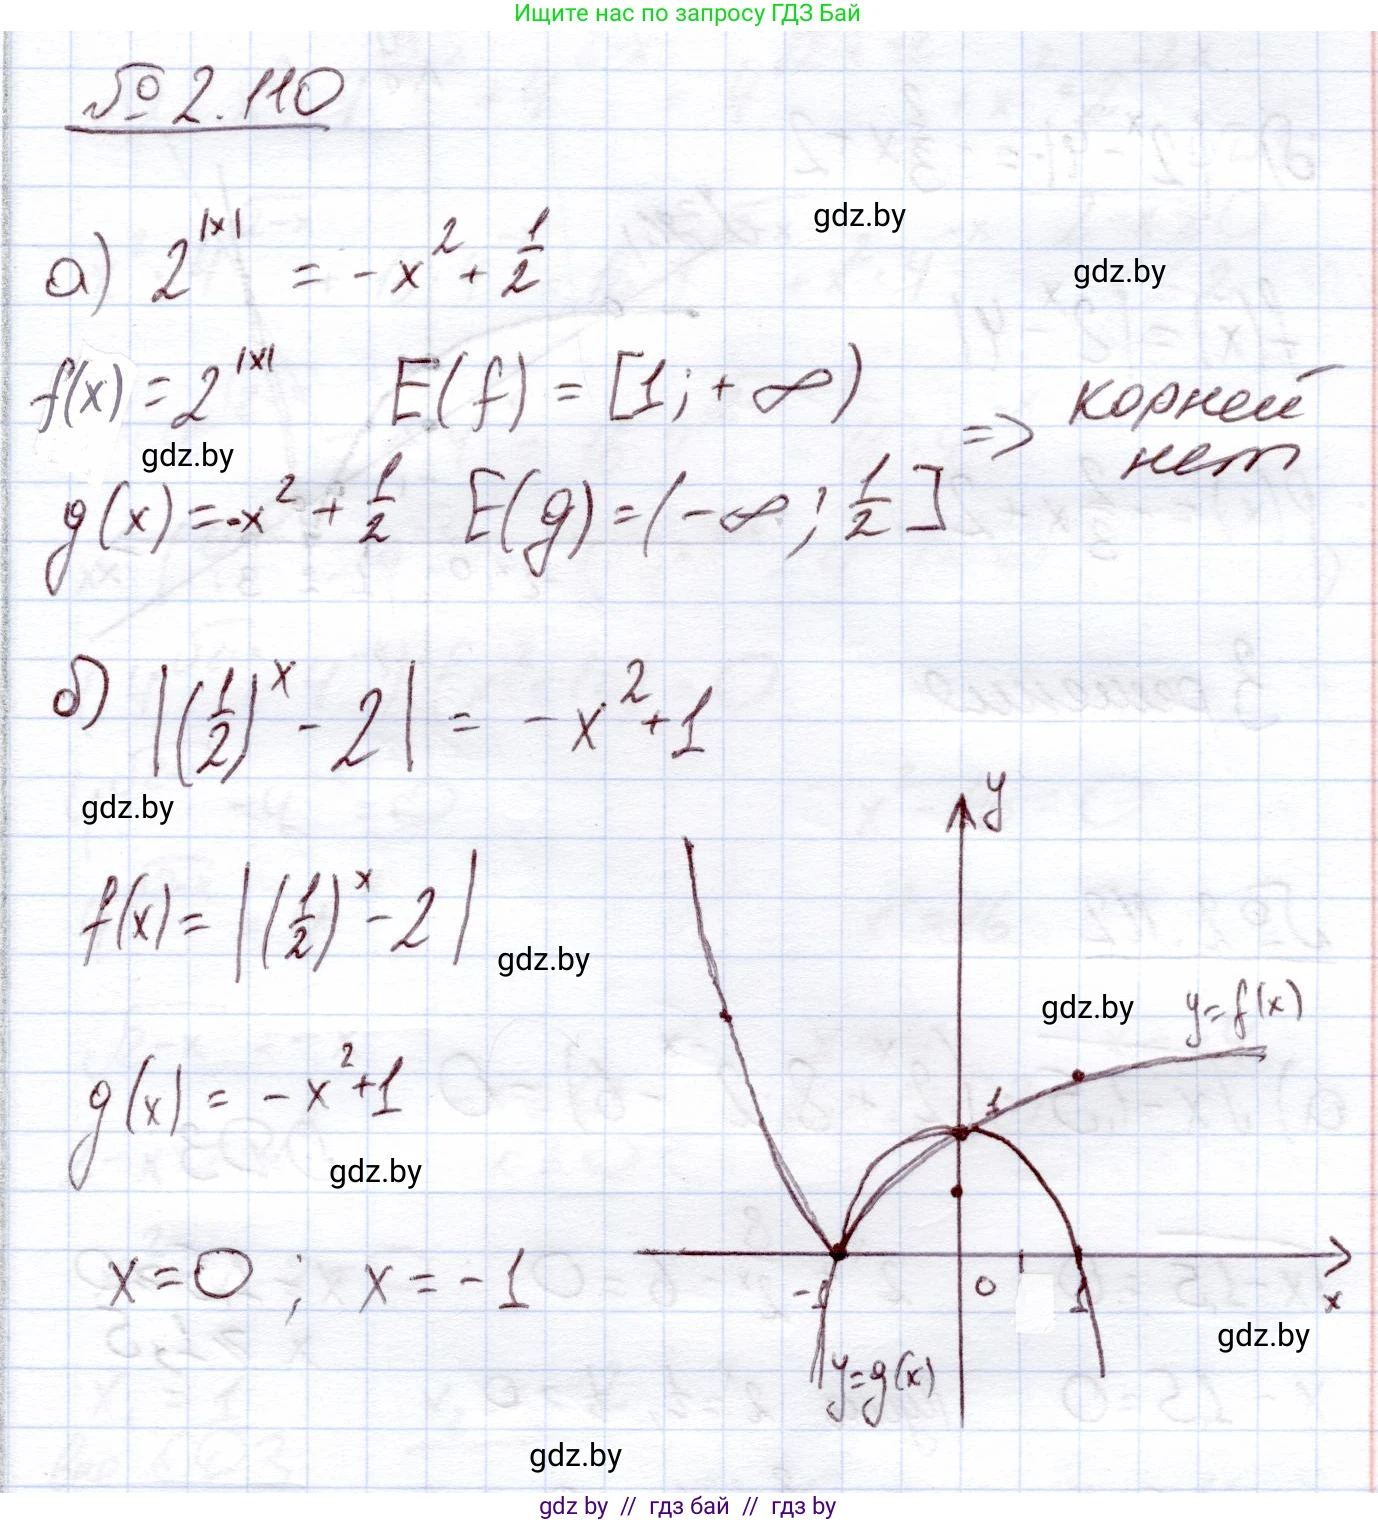 Ищите нас по запросу ГДЗ Бай
№ 2.110
gdz.by
а) 2^|x| = -x² + 1/2
gdz.by
f(x) = 2^|x| E(f) = [1; +∞)
=> корней нет
gdz.by
g(x) = -x² + 1/2 E(g) = (-∞; 1/2]
б) |(1/2)^x - 2| = -x² + 1
gdz.by
y
f(x) = |(1/2)^x - 2|
gdz.by
gdz.by
y = f(x)
g(x) = -x² + 1
1
gdz.by
x = 0; x = -1
-1 0 1 x
gdz.by
y = g(x)
gdz.by
gdz by // гдз бай // гдз by